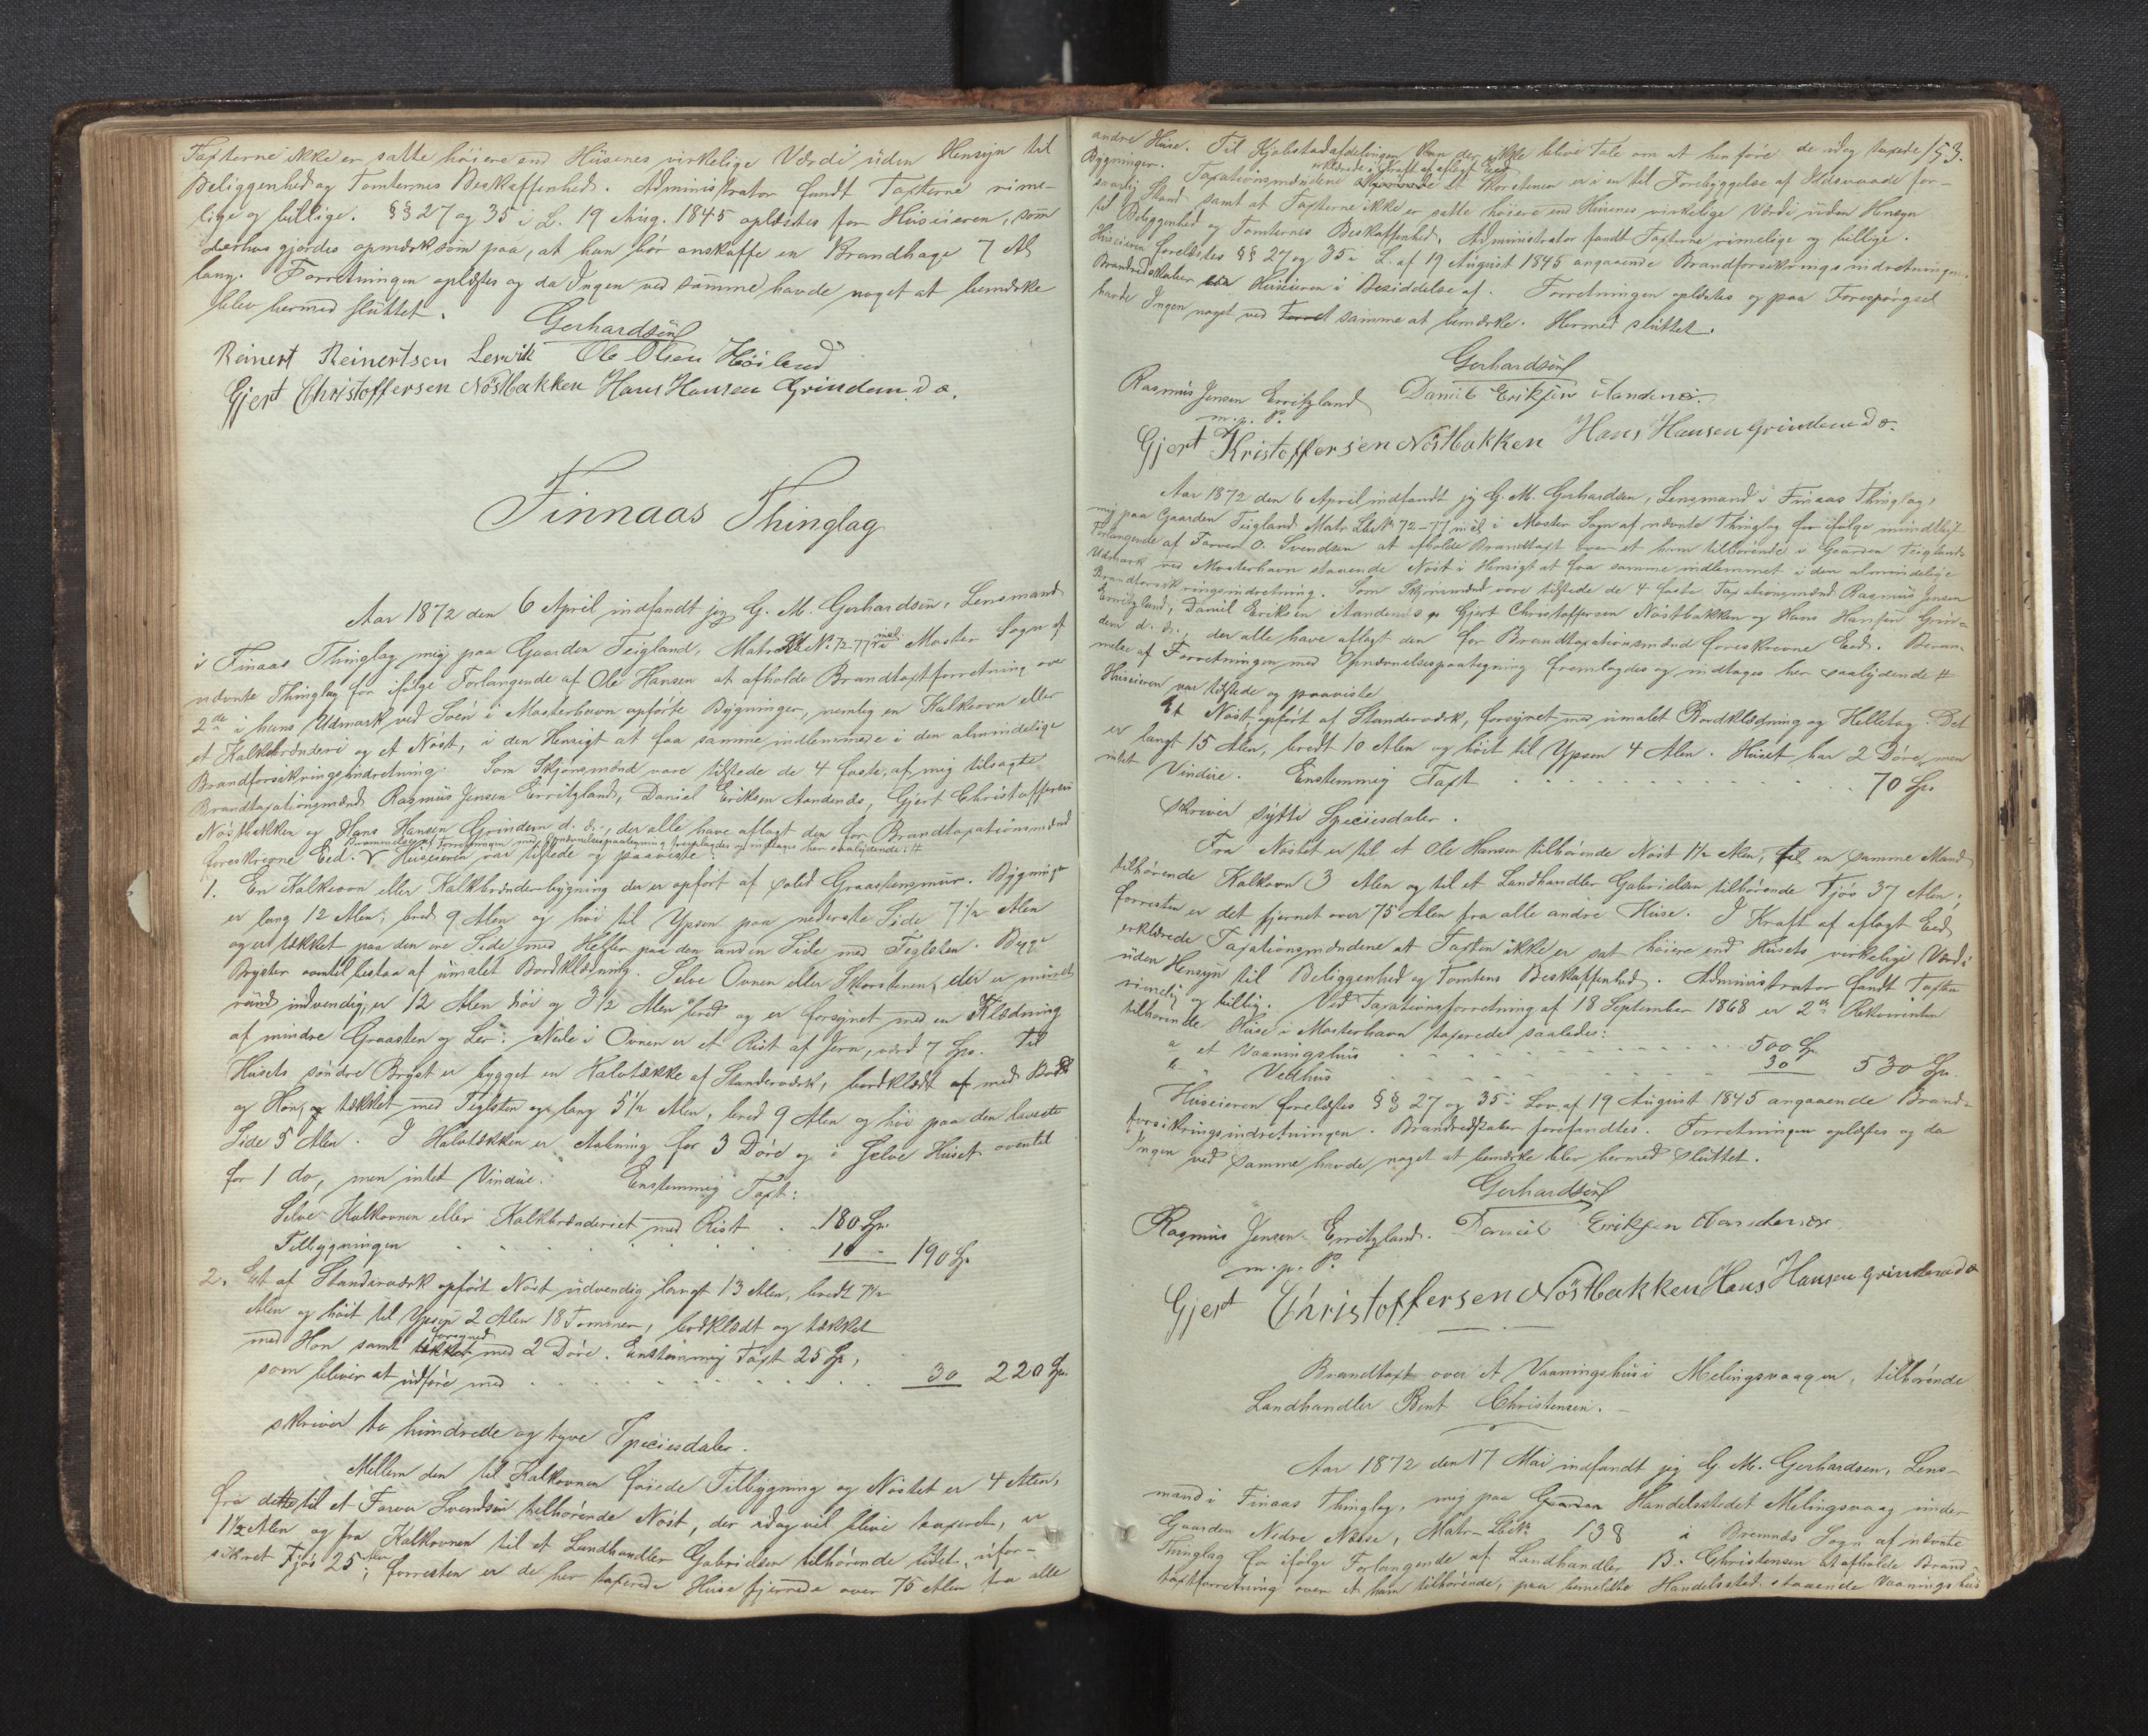 Taxterne ikke er satte höiere end Husenes virkelige Værdi uden Hensyn til
Beliggenhed og Tomternes Beskaffenhed. Administrator fandt Taxterne rime-
lige og billige. §§ 27 og 35 i L. 19 Aug. 1845 oplæstes for Huseieren, som
derhos gjordes opmærksom paa, at han bör anskaffe en Brandhage 7 Al.
lang. Forretningen oplæstes og da Ingen ved samme havde noget at bemærke
blev hermed sluttet.
Gerhardsen
Reinert Reinertsen Lervik Ole Olsen Höiland
Gjert Christoffersen Nöstbakken Hans Hansen Grindem d. a.
Finnaas Thinglag
Aar 1872 den 6 April indfandt jeg G. M. Gerhardsen, Lensmand
i Finaas Thinglag mig paa Gaarden Teigland, Matr. Lbe No. 72-77 incl. i Moster Sogn af
nævnte Thinglag for ifölge Forlangende af Ole Hansen at afholde Brandtaxtforretning over
2de i hans Udmark ved Söen i Mosterhavn opförte Bygninger, nemlig en Kalkovn eller
et Kalkbrænderi og et Nöst, i den Hensigt at faa samme indlemmede i den almindelige
Brandforsikringsindretning. Som Skjönsmænd vare tilstede de 4 faste, af mig tilsagte
Brandtaxationsmænd Rasmus Jensen Erritzland, Daniel Eriksen Aandenes, Gjert Christoffersen
Nöstbakken og Hans Hansen Grindem d. æ., der alle have aflagt den for Brandtaxationsmænd
Berammelse af Forretningen med Opnævnelsespaategning fremlagdes og indtages her saalydende: #
foreskrevne Eed. Huseieren var tilstede og paaviste:
1. En Kalkovn eller Kalkbrænderibygning der er opfört af solid Graastensmur. Bygningen
er lang 12 Alen; bred 9 Alen og höi til Ypsen paa nederste Side 7 1/2 Alen
og er tækket paa den ene Side med Heller paa den anden Side med Teglsten. Bygn
Bryster oventil bestaa af umalet Bordklædning. Selve Ovnen eller Skorstenen, der er muret
rund indvendig, er 12 Alen höi og 3 1/2 Alen bred og er forsynet med en Klædning
af mindre Graasten og Ler. Nede i Ovnen er et Rist af Jern, værd 7 Spd. Til
Husets söndre Bryst er bygget en Halvtække af Standerværk, bordklædt af med Bord
og Hon, og tækket med Teglsten og lang 5 1/2 Alen, bred 9 Alen og höi paa den laveste
Side 5 Alen. I Halvtækken er Aabning for 3 Döre og i Selve Huset oventil
for 1 do, men intet Vindue. Enstemmig Taxt:
Selve Kalkovnen eller Kalkbrænderiet med Rist . . 180 Spd.
Tilbygningen . . . . . 10 - 190 Spd.
2. Et af Standerværk opfört Nöst udvendig langt 13 Alen, bredt 7 1/2
Alen og höit til Ypsen 2 Alen 18 Tommer, bordklædt og tækket
med Hon samt forsynet med 2 Döre. Enstemmig Taxt 25 Spd,
som bliver at udföre med . . . . . 30 220 Spd.
skriver to hundrede og tyve Speciesdaler.
Mellem den til Kalkovnen föiede Tilbygning og Nöstet er 4 Alen,
fra dette til et Farver Svendsen tilhörende Nöst, der idag vil blive taxeret, er
1 1/2 Alen og fra Kalkovnen til et Landhandler Gabrielsen tilhörende lidet, ufor-
sikret Fjös 25 Alen; forresten er de her taxerede Huse fjernede over 75 Alen fra alle
153.
andre Huse. Til Kjöbstadafdelingen kan der ikke blive Tale om at henföre de idag taxerede
Bygninger. Taxationsmændene erklærede i Kraft af aflagt Eed at Skorstenen er i en til Forebyggelse af Ildsvaade for-
svarlig Stand samt at Taxterne ikke er satte höiere end Husenes virkelige Værdi uden Hensyn
til Beliggenhed og Tomternes Beskaffenhed. Administrator fandt Taxterne rimelige og billige.
Huseieren forelæstes §§ 27 og 35 i L. af 19 August 1845 angaaende Brandforsikringsindretningen.
Brandredskaber er Huseieren i Besiddelse af. Forretningen oplæstes og paa Forespörgsel
havde Ingen noget ved samme at bemærke. Hermed sluttet.
Gerhardsen
Rasmus Jensen Erritzland Daniel Eriksen Aandenes.
m. p. P.
Gjert Kristoffersen Nöstbakken Hans Hansen Grindem d æ.
Aar 1872 den 6 April indfandt jeg G. M. Gerhardsen, Lensmand i Finaas Thinglag,
mig paa Gaarden Teigland Matr. Lbe No. 72-77 incl. i Moster Sogn af nævnte Thinglag for ifölge mundtligt
Forlangende af Farver O. Svendsen at afholde Brandtaxt over et ham tilhörende i Gaarden Teiglands
Udmark ved Mosterhavn staaende Nöst i Hensigt at faa samme indlemmet i den almindelige
Brandforsikringsindretning. Som Skjönsmænd vare tilstede de 4 faste Taxationsmænd Rasmus Jensen
Erritzland, Daniel Eriksen Aandenes, Gjert Christoffersen Nöstbakken og Hans Hansen Grin-
dem d. æ., der alle have aflagt den for Brandtaxationsmænd foreskrevne Eed. Beram-
melse af Forretningen med Opnævnelsespaategning fremlagdes og indtages her saalydende #
Huseieren var tilstede og paaviste
Et Nöst opfört af Standerværk, forsynet med umalet Bordklædning og Helletag. Det
er langt 15 Alen, bredt 10 Alen og höit til Ypsen 4 Alen. Huset har 2 Döre, men
intet Vindue. Enstemmig Taxt . . . . . 70 Spd.
skriver sytti Speciesdaler.
Fra Nöstet er til et Ole Hansen tilhörende Nöst 1 1/2 Alen, til en samme Mand
tilhörende Kalkovn 3 Alen og til et Landhandler Gabrielsen tilhörende Fjös 37 Alen;
forresten er det fjernet over 75 Alen fra alle andre Huse. I Kraft af aflagt Eed
erklærede Taxationsmændene at Taxten ikke er sat höiere end Husets virkelige Værdi
uden Hensyn til Beliggenhed og Tomtens Beskaffenhed. Administrator fandt Taxten
rimelig og billig. Ved Taxationsforretning af 18 September 1868 er 2de Rekvirenten
tilhörende Huse i Mosterhavn taxerede saaledes:
a et Vaaningshus . . . . . 500 Spd.
b " Vedhus . . . . . 30 530 Spd.
Huseieren forelæstes §§ 27 og 35 i Lov af 19 August 1845 angaaende Brand-
forsikringsindretningen. Brandredskaber forefandtes. Forretningen oplæstes og da
Ingen ved samme havde noget at bemærke blev hermed sluttet.
Gerhardsen
Rasmus Jensen Erritzland. Daniel Eriksen Aandenes
m. p. P.
Gjert Christoffersen Nöstbakken Hans Hansen Grindem d æ
Brandtaxt over et Vaaningshus i Melingsvaagen, tilhörende
Landhandler Bent Christensen.
Aar 1872 den 17 Mai indfandt jeg G. M. Gerhardsen, Lens-
mand i Finaas Thinglag, mig paa Gaarden Handelsstedet Melingsvaag under
Gaarden Nedre Næsse, Matr. Lbe No. 138 i Bremnæs Sogn af nævnte
Thinglag for ifölge Forlangende af Landhandler B. Christensen at afholde Brand-
taxtforretning over et ham tilhörende, paa bemeldte Handelssted staaende Vaaningshus